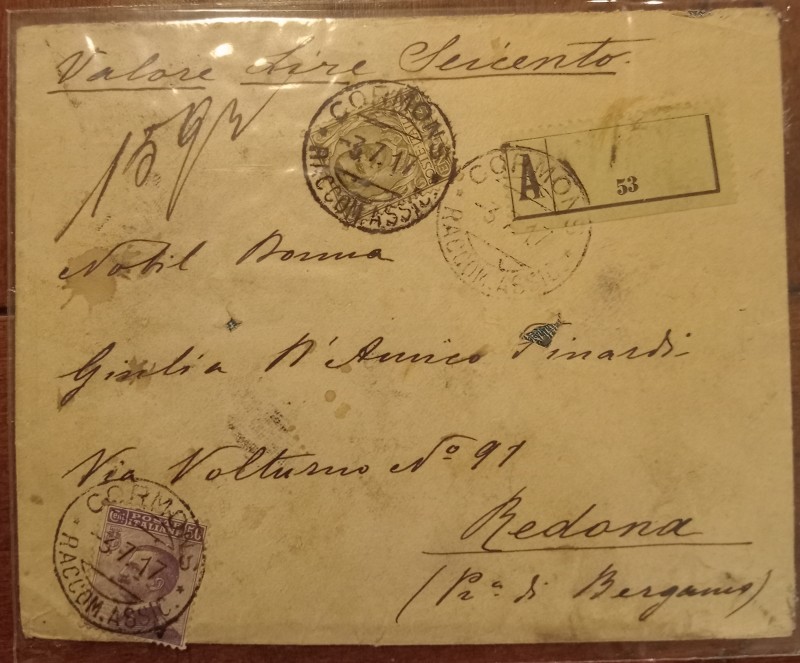 Valore Lire Seicento.
CORMONS
-3.7.17
RACCOM. ASSIC.
A
53
CORMONS
RACCOM. ASSIC.
Nobil Donna
Giulia D'Amico Finardi
Via Volturno Nº 91
Redona
(Pr.ª di Bergamo)
CORMONS
-3.7.17
RACCOM. ASSIC.
50
POSTE
ITALIANE